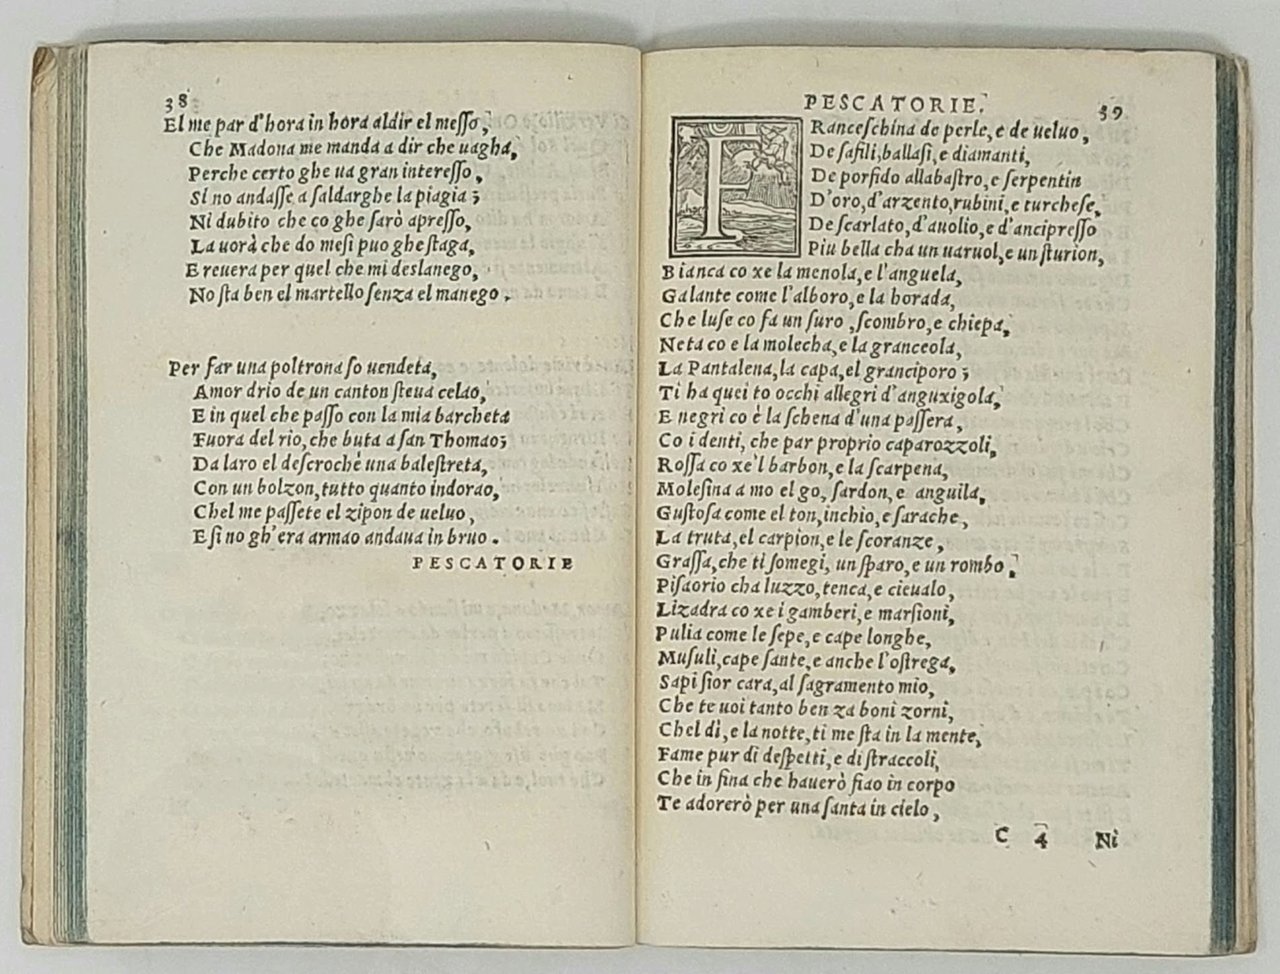 38
El me par d'hora in hora aldir el messo,
Che Madona me manda a dir che uagha,
Perche certo ghe ua gran interesso,
Si no andasse a saldarghe la piagia;
Ni dubito che co ghe sarò apresso,
La uorà che do mesi puo ghe staga,
E reuera per quel che mi deslanego,
No sta ben el martello senza el manego.
Per far una poltrona so uendeta,
Amor drio de un canton steua celao,
E in quel che passo con la mia barcheta
Fuora del rio, che buta a san Thomao;
Da laro el descrochè una balestreta,
Con un bolzon, tutto quanto indorao,
Chel me passete el zipon de ueluo,
E si no gh'era armao andaua in bruo.
PESCATORIE
PESCATORIE.
39
FRanceschina de perle, e de ueluo,
De safili, ballasi, e diamanti,
De porfido allabastro, e serpentin
D'oro, d'arzento, rubini, e turchese,
De scarlato, d'auolio, e d'ancipresso
Piu bella cha un uaruol, e un sturion,
Bianca co xe la menola, e l'anguela,
Galante come l'alboro, e la horada,
Che luse co fa un suro, scombro, e chiepa,
Neta co e la molecha, e la granceola,
La Pantalena, la capa, el granciporo;
Ti ha quei to occhi allegri d'anguxigola,
E negri co è la schena d'una passera,
Co i denti, che par proprio caparozzoli,
Rossa co xe'l barbon, e la scarpena,
Molesina a mo el go, sardon, e anguila,
Gustosa come el ton, inchio, e sarache,
La truta, el carpion, e le scoranze,
Grassa, che ti somegi, un sparo, e un rombo,
Pisaorio cha luzzo, tenca, e cieualo,
Lizadra co xe i gamberi, e marsioni,
Pulia come le sepe, e cape longhe,
Musuli, cape sante, e anche l'ostrega,
Sapi sior cara, al sagramento mio,
Che te uoi tanto ben za boni zorni,
Chel dì, e la notte, ti me sta in la mente,
Fame pur di despetti, e di straccoli,
Che in fina che hauerò fiao in corpo
Te adorerò per una santa in cielo,
C 4 Ni